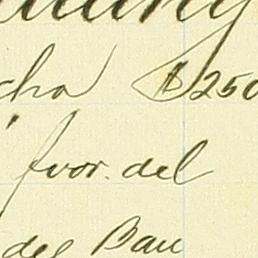 cha $250
fvor. del
del Ban